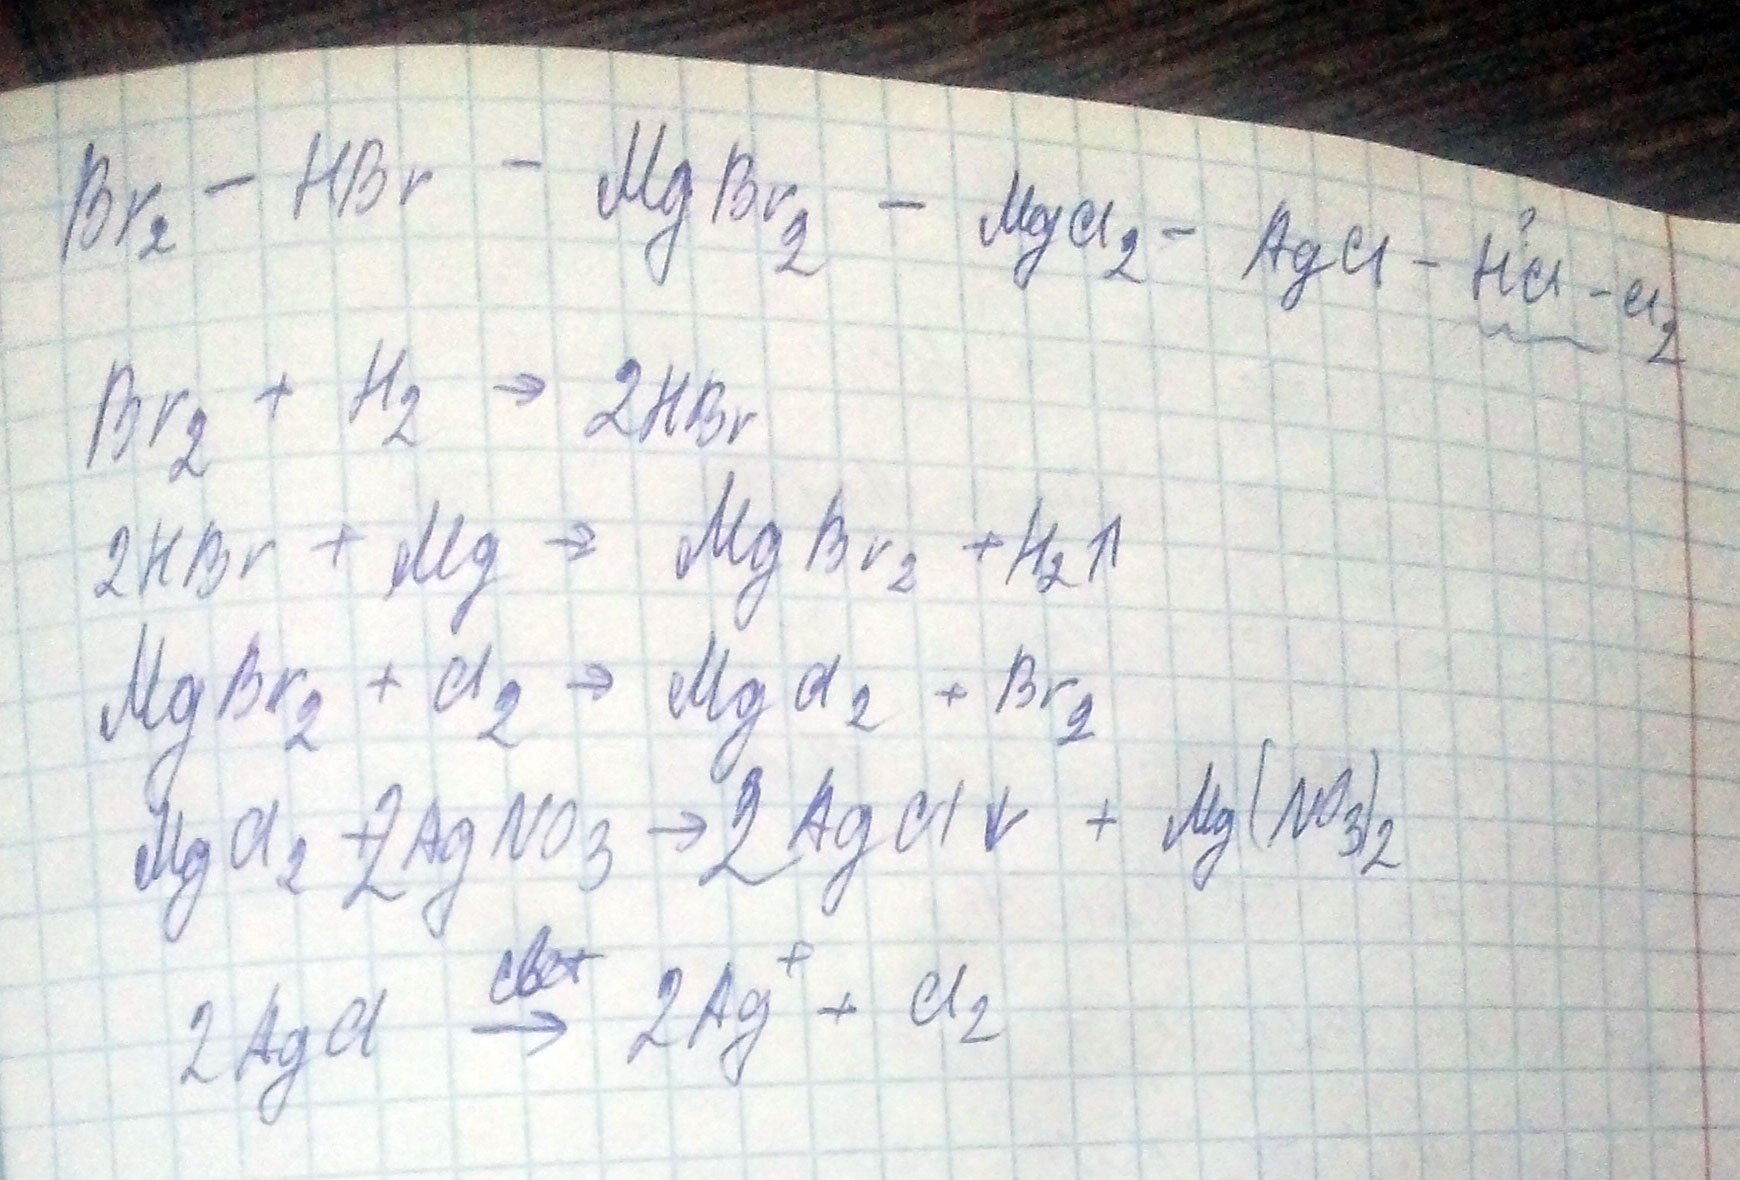 Br₂ – HBr – MgBr₂ – MgCl₂ – AgCl – HCl – Cl₂
?
Br₂ + H₂ → 2HBr
2HBr + Mg → MgBr₂ + H₂↑
MgBr₂ + Cl₂ → MgCl₂ + Br₂
MgCl₂ + 2AgNO₃ → 2AgCl↓ + Mg(NO₃)₂
2AgCl свет → 2Ag⁺ + Cl₂